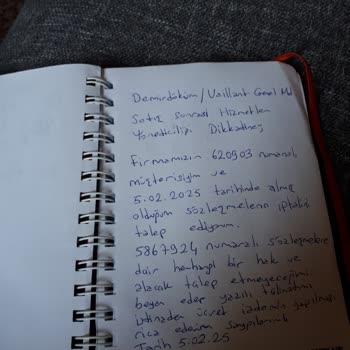 Demirdöküm/Vaillant Genel Md
Satış sonrası Hizmetleri
Yöneticiliği Dikkatine;
Firmamızın 620903 numaralı
müşterisiyim ve
5.02.2025 tarihinde almış
olduğum sözleşmelerin iptalini
talep ediyorum.
5867924 numaralı sözleşmelere
dair herhangi bir hak ve
alacak talep etmeyeceğimi
beyan eder yazılı
ücret iademin yapılmasını
rica ederim
Tarih 5.02.25